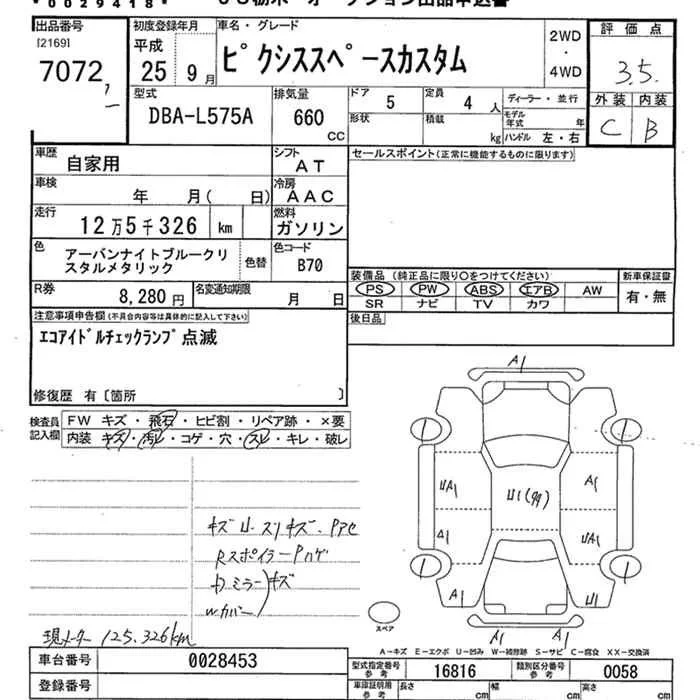 *0029418*
出品番号
[2169]
7072
初度登録年月
平成
25 9月
車名・グレード
ピクシススペースカスタム
2WD
・
4WD
評価点
3.5
外装 内装
C B
型式
DBA-L575A
排気量
660
CC
ドア 5
形状
定員 4 人
積載 kg
ディーラー・並行
モデル年式 年
ハンドル 左・右
車歴
自家用
シフト
AT
セールスポイント(正常に機能するものに限ります)
車検
年 月( 日)
冷房
AAC
走行
12万5千326 km
燃料
ガソリン
色
アーバンナイトブルークリ
スタルメタリック
色替
色コード
B70
装備品 (純正品に限り○をつけてください)
PS PW ABS エアB AW
SR ナビ TV カワ
新車保証書
有・無
R券
8,280円
名変通知期限
月 日
後日品
注意事項申告欄(不具合内容等は具体的に記入して下さい)
エコアイドルチェックランプ点滅
修復歴 有〔箇所 〕
検査員
記入欄
FW キズ・飛石・ヒビ割・リペア跡・×要
内装 キズ・汚レ・コゲ・穴・スレ・キレ・破レ
A1
UA1
U1(99)
A1
A1
UA1
A1
U1
A1 A1
キズU.スリキズ.Pアセ
RスポイラーPハゲ
ミラー キズ
Wカバー
現メーター 125.326km
スペア
A-キズ E-エクボ U-凹み W-補修跡 S-サビ C-腐食 XX-交換済
車台番号
0028453
型式指定番号
参考
16816
類別区分番号
参考
0058
登録番号
車庫証明用
参考
長さ cm
幅 cm
高さ cm